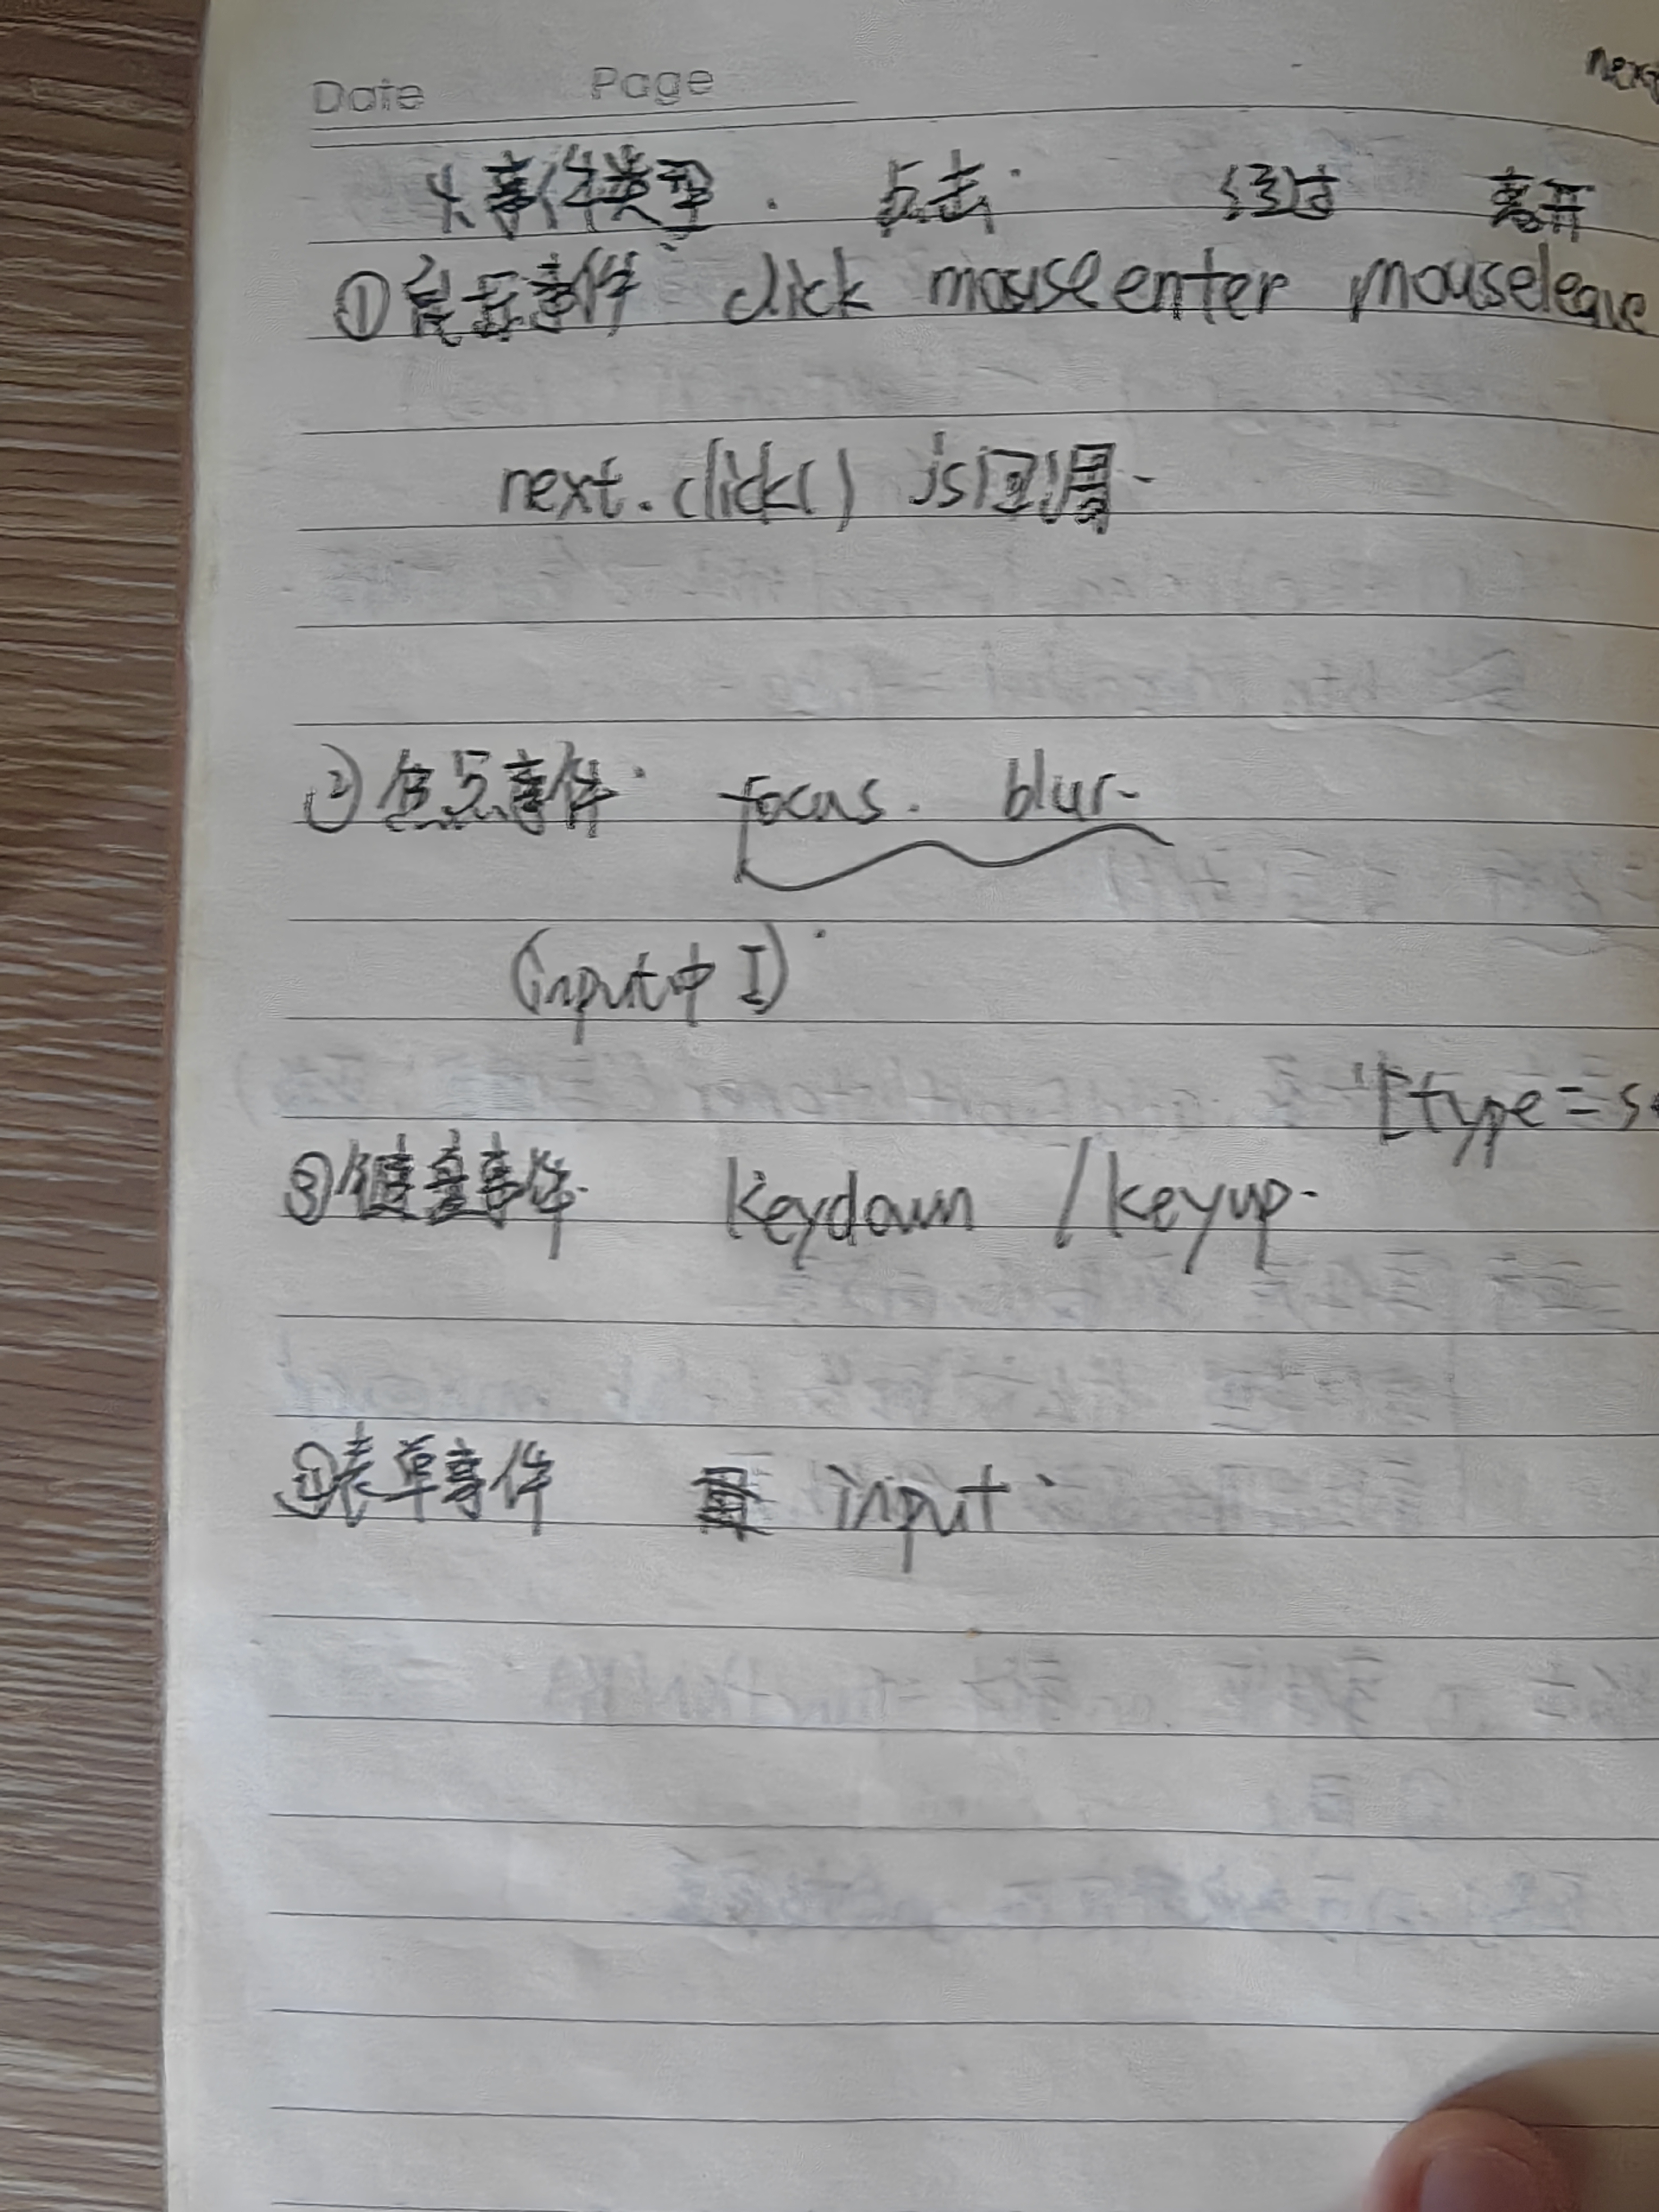 Date Page
next
大事件类型. 点击. 经过 离开
①鼠标事件 click mouseenter mouseleave
next.click() js回调.
②焦点事件. focus. blur.
(input中I).
[type=s
③键盘事件. keydown / keyup.
④表单事件 input.